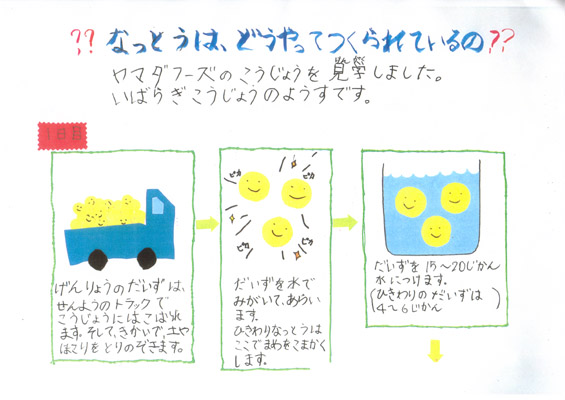 ?? なっとうは、どうやってつくられているの??
ヤマダフーズのこうじょうを見学しました。
いばらぎこうじょうのようすです。
1日目
げんりょうのだいずは、
せんようのトラックで
こうじょうにはこばれ
ます。そして、きかいで、土や
ほこりをとりのぞきます。
ピカ
ピカ
ピカ
ピカ
だいずを水で
みがいて、あらい
ます。
ひきわりなっとうは
ここでまめをこまかく
します。
だいずを15〜20じかん
水につけます。
(ひきわりのだいずは
4〜6じかん)